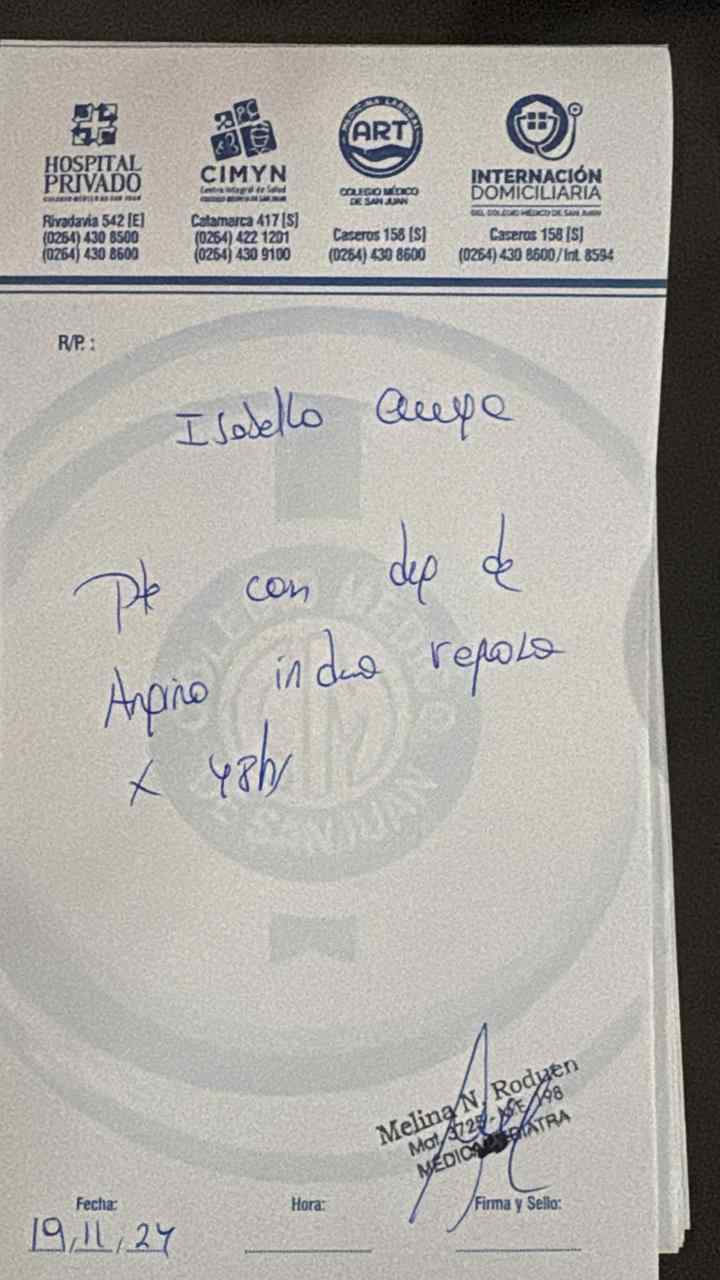 HOSPITAL
PRIVADO
COLEGIO MÉDICO DE SAN JUAN
Rivadavia 542 [E]
(0264) 430 8500
(0264) 430 8600
CIMYN
Centro Integral de Salud
COLEGIO MÉDICO DE SAN JUAN
Catamarca 417 [S]
(0264) 422 1201
(0264) 430 9100
MEDICINA LABORAL
ART
COLEGIO MÉDICO
DE SAN JUAN
Caseros 158 [S]
(0264) 430 8600
INTERNACIÓN
DOMICILIARIA
DEL COLEGIO MÉDICO DE SAN JUAN
Caseros 158 [S]
(0264) 430 8600/Int. 8594
R/P.:
Isabella
Pte con dep de
reposo
x 48hs
COLEGIO MÉDICO
DE SAN JUAN
Melina N. Roduen
Mat. 3725
MEDICA PEDIATRA
Fecha:
19,11,24
Hora:
Firma y Sello: